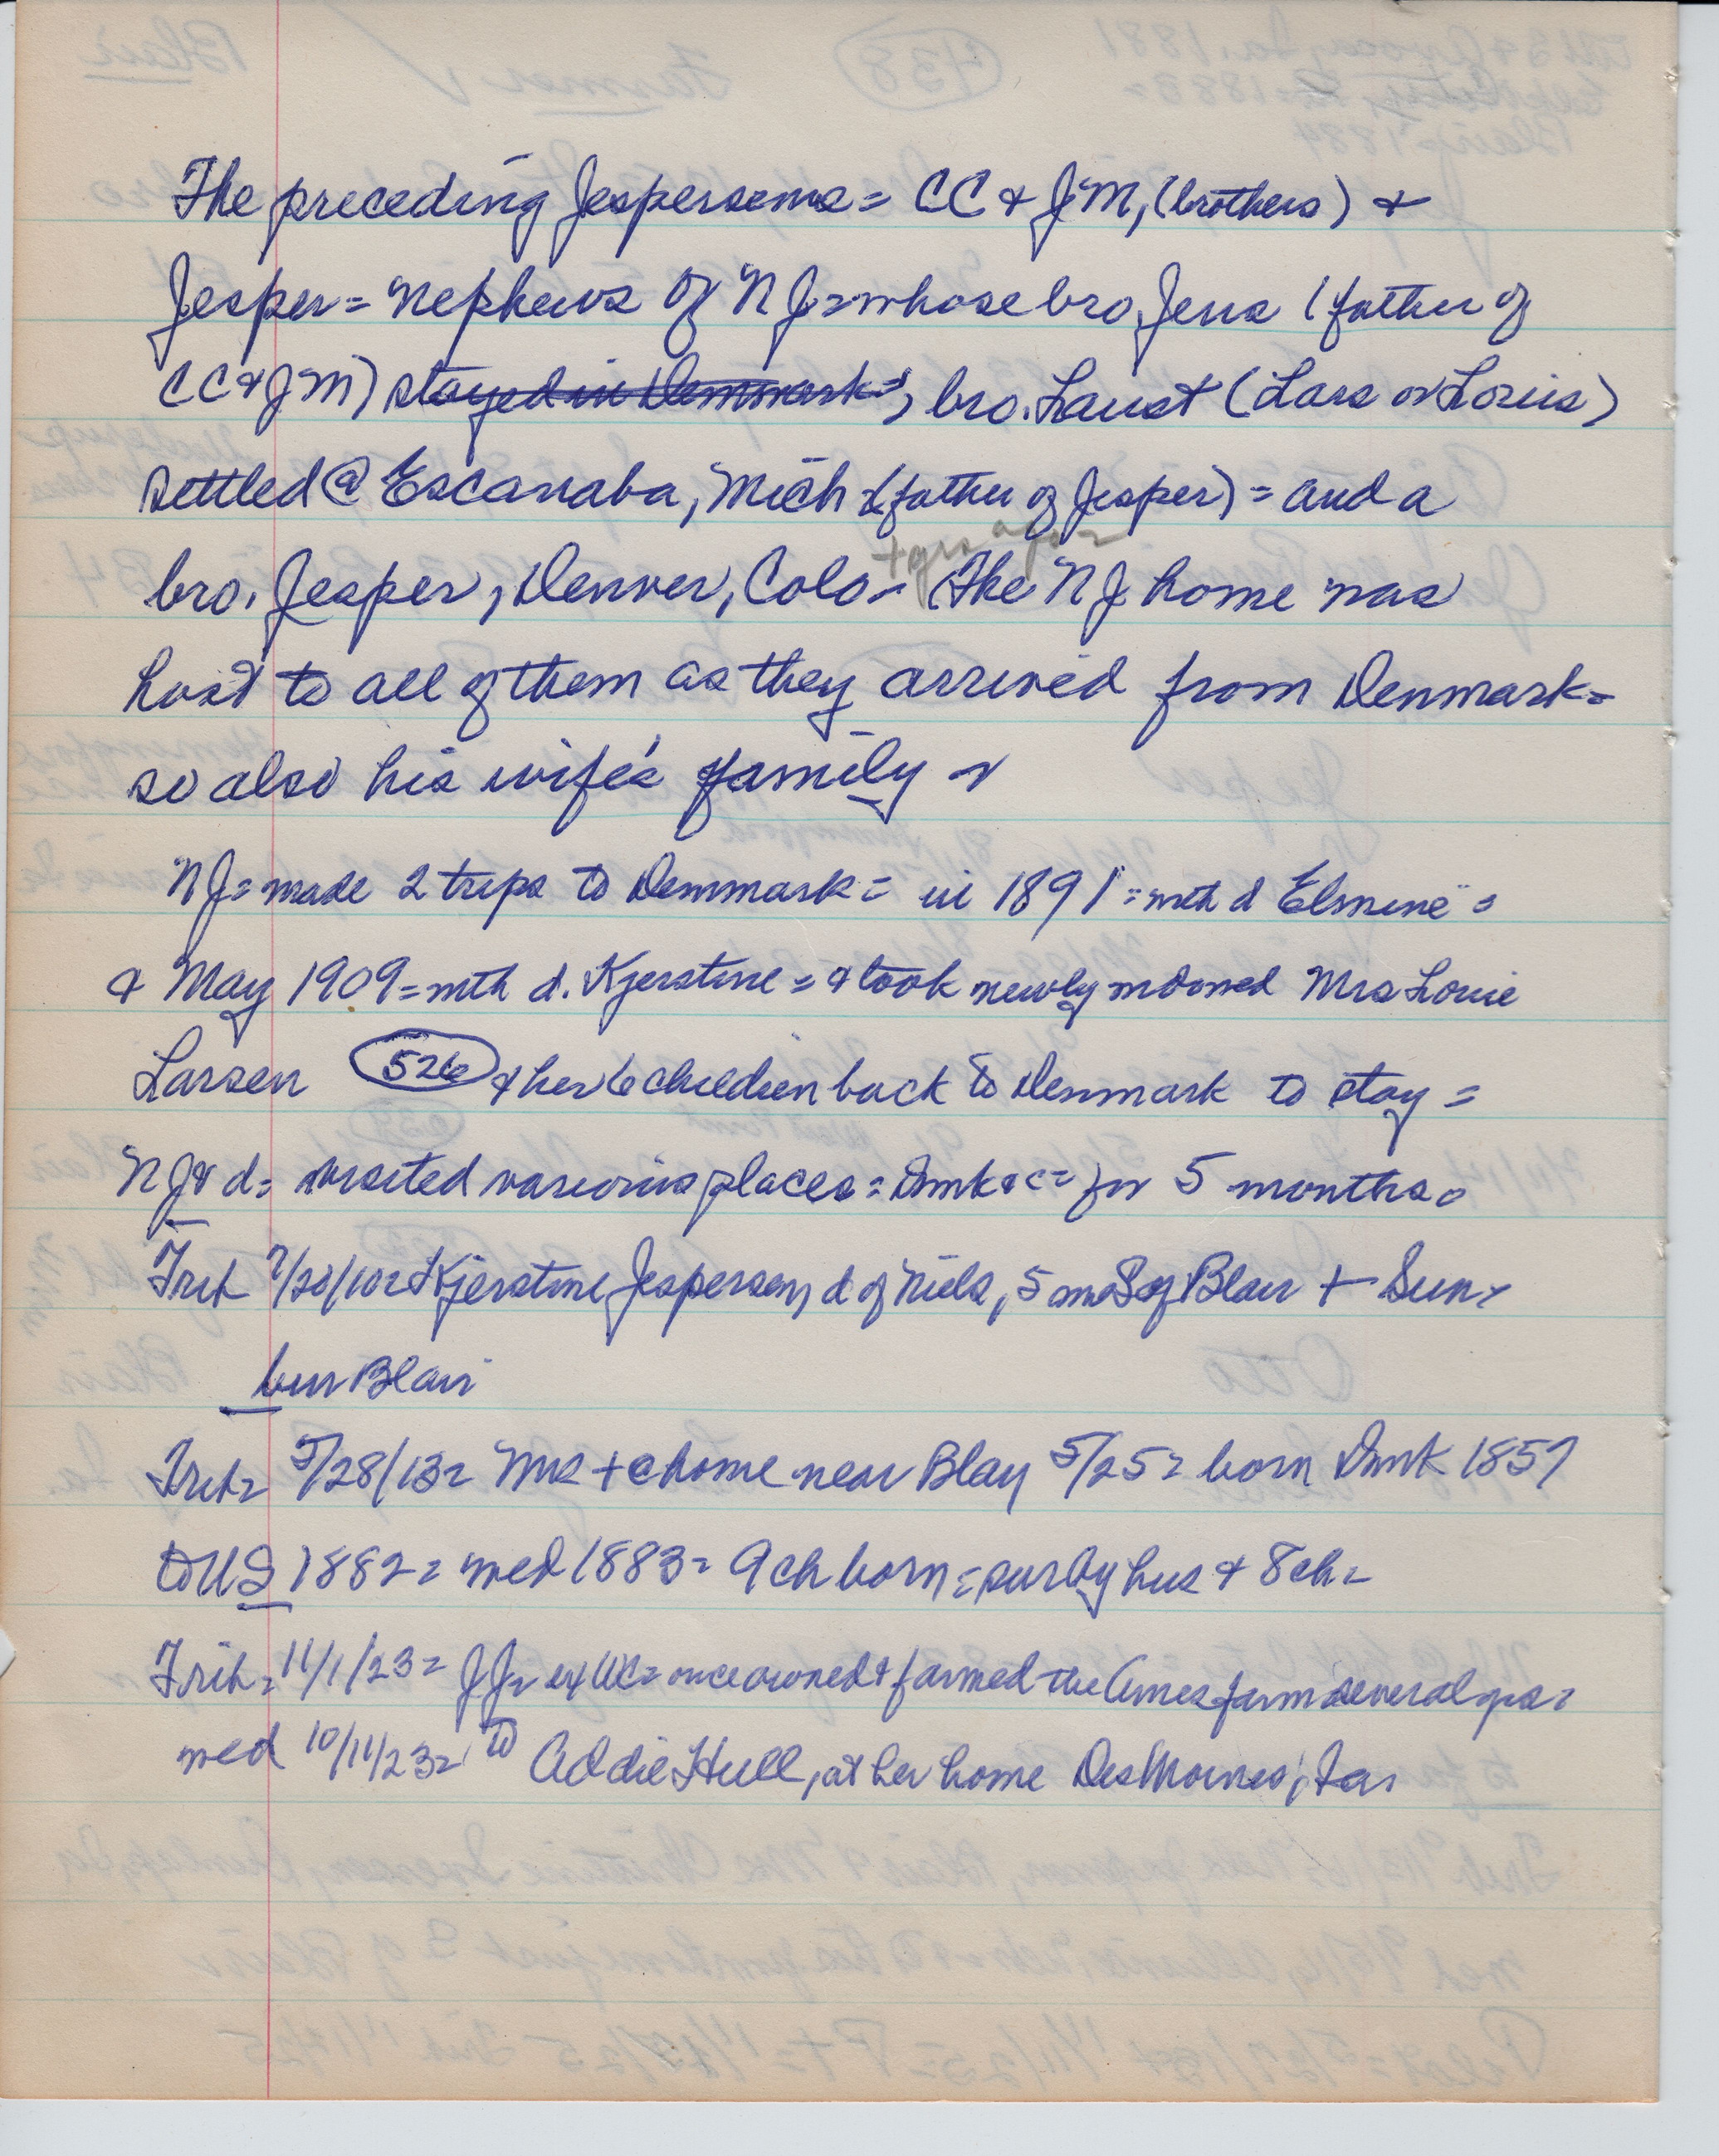 The preceding Jespersens = CC & JM, (brothers) &
Jesper = nephews of NJ = whose bro. Jens (father of
CC & JM) stayed in Denmark =, bro. Laust (Lars or Louis)
settled @ Escanaba, Mich (father of Jesper) = and a
bro. Jesper, Denver, Colo = (The NJ home was
host to all of them as they arrived from Denmark =
so also his wife's family
NJ = made 2 trips to Denmark = in 1891 = with d Elsmine =
& May 1909 = with d. Kjerstine = & took newly widowed Mrs Louie
Larsen 526 & her 6 children back to Denmark to stay =
NJ & d = visited various places = Dmk &c = for 5 months.
Trib /20/10 = Kjerstine Jespersen, d of Niels, 5 mi S of Blair + Sun =
bur Blair
Trib = 5/28/13 = Mrs + @ home near Blair 5/25 = born Dmk 1857
to US 1882 = med 1883 = 9 ch born = sur by hus & 8 ch =
Trib = 11/1/23 = JJ = ex WC = once owned & farmed the Ames farm several yrs =
med 10/11/23 = to Addie Hull, at her home Des Moines, Ia.